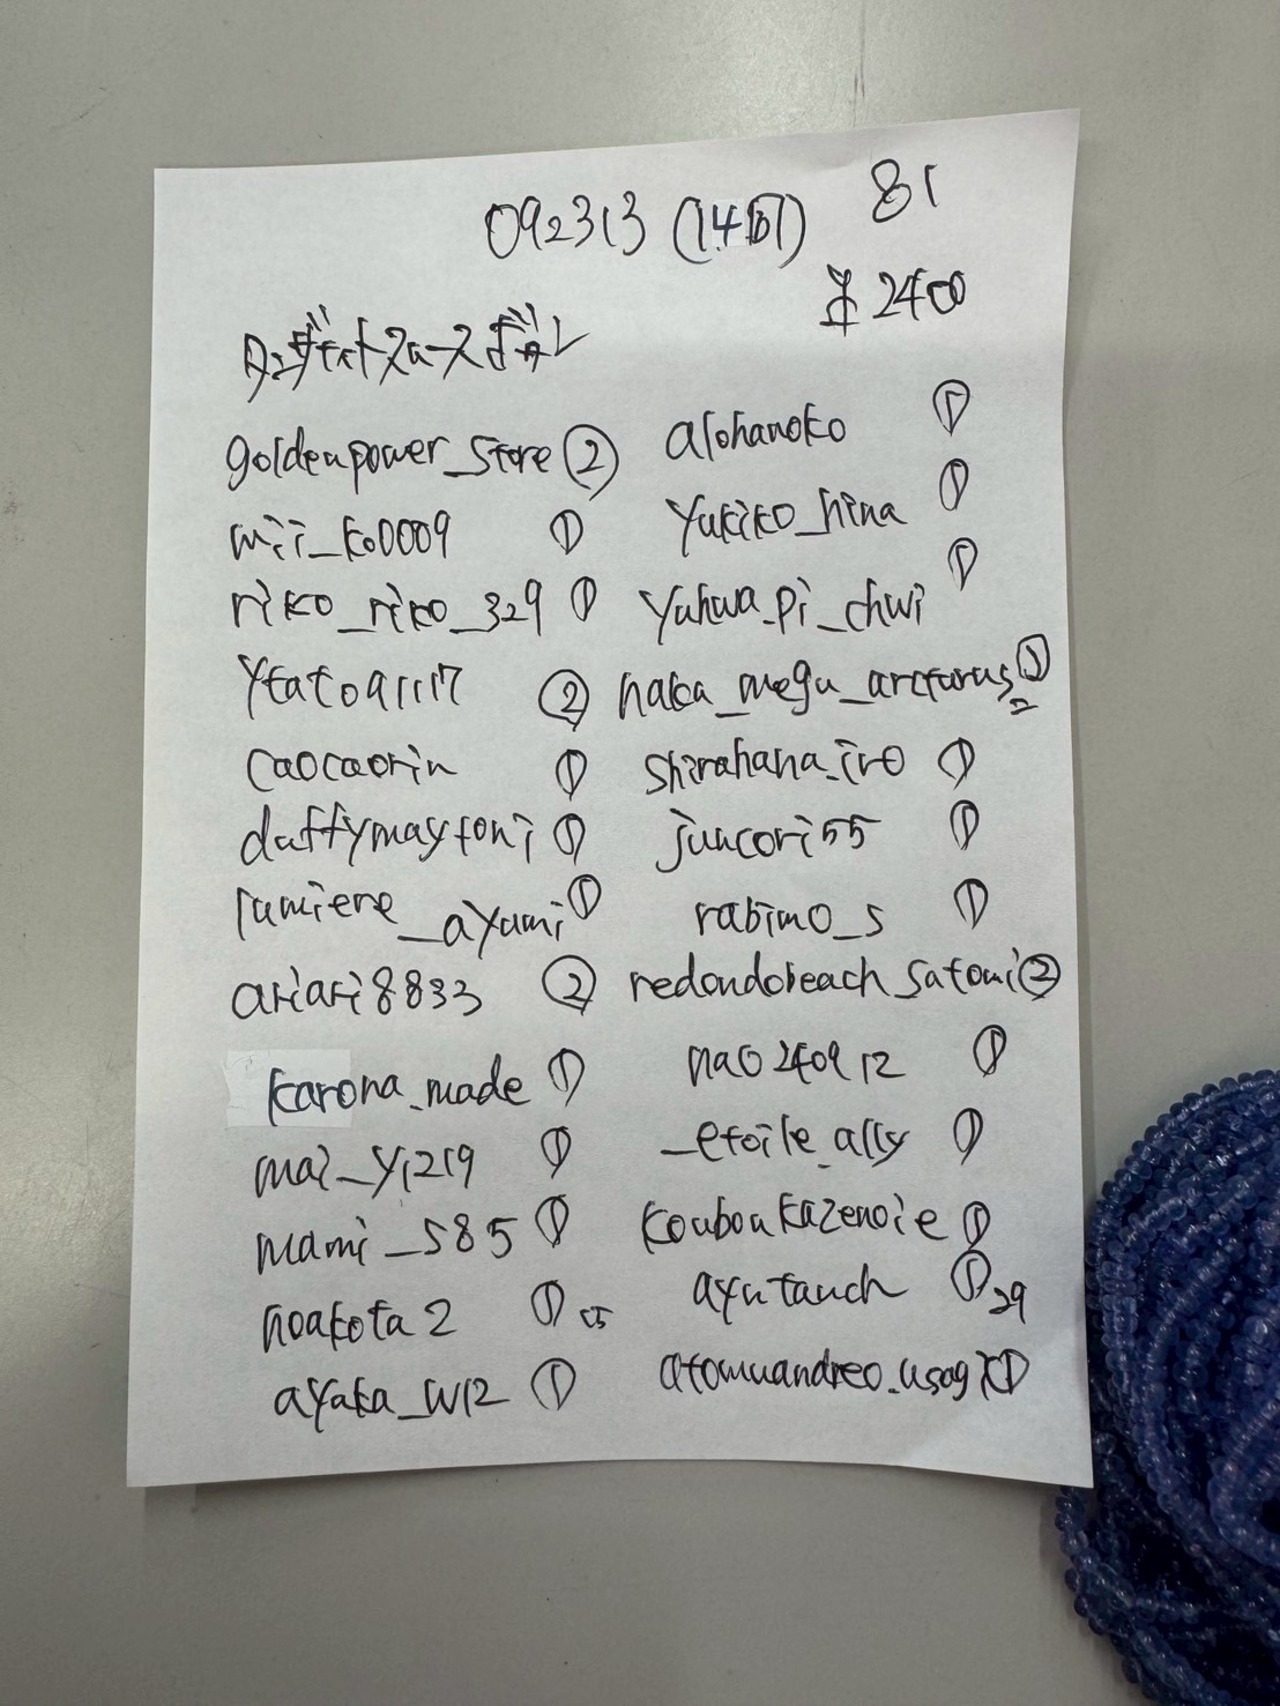 092313 (14割) 81
¥2400
タンザナイトスムースボタン
goldenpower_store ②
mii_ko0009 ①
riko_riko_329 ①
ytato91117 ②
caocaorin ①
daffymaytoni ①
lumiere_ayumi ①
ariari8833 ②
karona_made ①
mai_y1219 ①
mami_585 ①
noakota2 ① 15
ayaka_w12 ①
alohanoko ①
yukiko_hina ①
yuhwa_pi_chwi ①
naka_megu_arcturus ① 2
shirahana_iro ①
juncori55 ①
rabimo_s ①
redondobeach_satomi ②
nao240912 ①
_etoile_ally ①
kouboukazenoie ①
ayutauch ① 29
atomuandreo.usagi ①